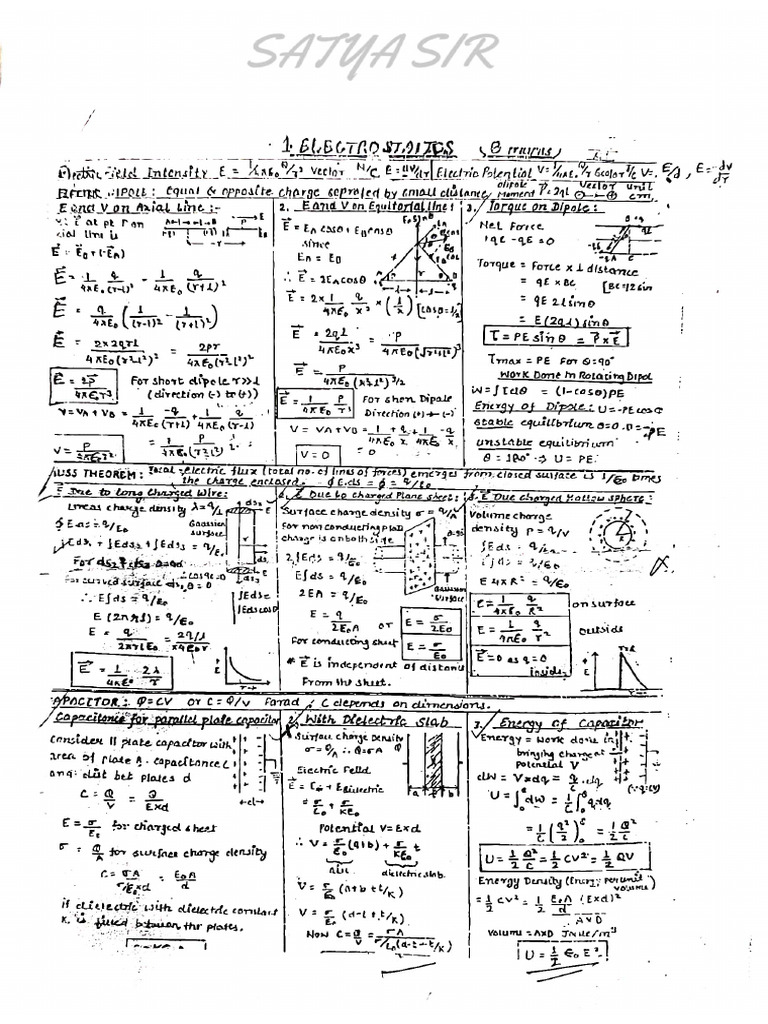 SATYA SIR
1. ELECTROSTATICS (8
Field Intensity E = 1/4πε₀ q/r² vector N/C Electric Potential
DIPOLE: Equal & opposite charge seprated by small distance, dipole moment P = 2ql vector unit cm.
E and V on Axial Line :-
E at pt P on
axial line is
E = 1/4πε₀ q/(r-l)² - 1/4πε₀ q/(r+l)²
E = q/4πε₀ (1/(r-l)² - 1/(r+l)²)
E = 2×2qrl/4πε₀(r²-l²)² = 2pr/4πε₀(r²-l²)²
E = 2P/4πε₀r³ For short dipole r>>l
(direction (-) to (+))
V = VA + VB = 1/4πε₀ -q/(r+l) + 1/4πε₀ q/(r-l)
= 1/4πε₀ P/(r²-l²)
V = P/4πε₀r²
2. E and V on Equitorial line :
E = EA cosθ + EB cosθ
since
EA = EB
∴ E = 2EA cosθ
E = 2× 1/4πε₀ q/x² × (l/x) [cosθ = l/x]
E = 2ql/4πε₀x³ = P/4πε₀(√r²+l²)³
E = P/4πε₀(r²+l²)3/2
E = 1/4πε₀ P/r³ For short Dipole
Direction (+) → (-)
V = VA + VB = 1/4πε₀ +q/x + 1/4πε₀ -q/x
V = 0 = 0
3. Torque on Dipole :
Net Force
+qE - qE = 0
Torque = Force × ⊥ distance
= qE × BC [BC = 2l sin
= qE 2l sinθ
= E(2ql) sinθ
τ = PE sinθ = P × E
τmax = PE For θ=90°
Work Done in Rotating Dipol
W = ∫τdθ = (1-cosθ)PE
Energy of Dipole: U = -PE cosθ
stable equilibrium θ=0. U = -PE
unstable equilibrium
θ = 180° → U = PE
USS THEOREM: Total electric flux (total no. of lines of forces) emerges from closed surface is 1/ε₀ times
the charge enclosed. ∮E.ds = ϕ = q/ε₀
E Due to long charged Wire:
Linear charge density λ = q/l
∮E.ds = q/ε₀
Gaussian
surface
∫Eds₁ + ∫Eds₂ + ∫Eds₃ = q/ε₀
For curved surface ds, θ = 0
∴ E∫ds = q/ε₀
E (2πrl) = q/ε₀
E = q/2πrlε₀ = 2q/l/4πε₀r
E = 1/4πε₀ 2λ/r
E Due to charged Plane sheet:
Surface charge density σ = q/A
for non conducting plate
charge is on both side
2∫Eds = q/ε₀
E∫ds = q/ε₀
2EA = q/ε₀
Gaussian
surface
E = q/2ε₀A or E = σ/2ε₀
For conducting sheet E = σ/ε₀
* E is independent of distance
From the sheet.
E Due charged Hollow sphere:
Volume charge
density ρ = q/V
∫Eds = q/ε₀
E∫ds = q/ε₀
E 4πR² = q/ε₀
E = 1/4πε₀ q/R² on surface
E = 1/4πε₀ q/r² outside
E = 0 as q = 0
inside
APACITOR: Q=CV or C = Q/V Farad ; C depends on dimensions.
Capacitance for parallel plate capacitor
consider || plate capacitor with
area of plate A. capacitance C
and dist bet plates d
C = Q/V = Q/E×d
E = σ/ε₀ for charged sheet
σ = Q/A for surface charge density
C = σA/σ/ε₀×d = ε₀A/d
if dielectric with dielectric constant
K is filled between the plates.
2. With Dielectric Slab
Surface charge Density
σ = Q/A ∴ Q = σA
Electric Feild
E = E₀ + E dielectric
= σ/ε₀ + σ/Kε₀
Potential V = E×d
∴ V = σ/ε₀ (a+b) + σ/Kε₀ t
dielectric slab.
V = σ/ε₀ (a+b+t/K)
V = σ/ε₀ (d-t+t/K)
Now C = Q/V = σA/σ/ε₀(d-t-t/K)
3. Energy of Capacitor
Energy = Work done in
bringing charge at
potential V
dW = V×dq = q/C .dq (∵ q=CV)
U = ∫dW = 1/C ∫q dq
= 1/C (q²/2) = 1/2 Q²/C
U = 1/2 Q²/C = 1/2 CV² = 1/2 QV
Energy Density (Energy per unit
volume)
= 1/2 CV² = 1/2 ε₀A/d (E×d)²
A×D
volume = A×D Joule/m³
U = 1/2 ε₀ E²